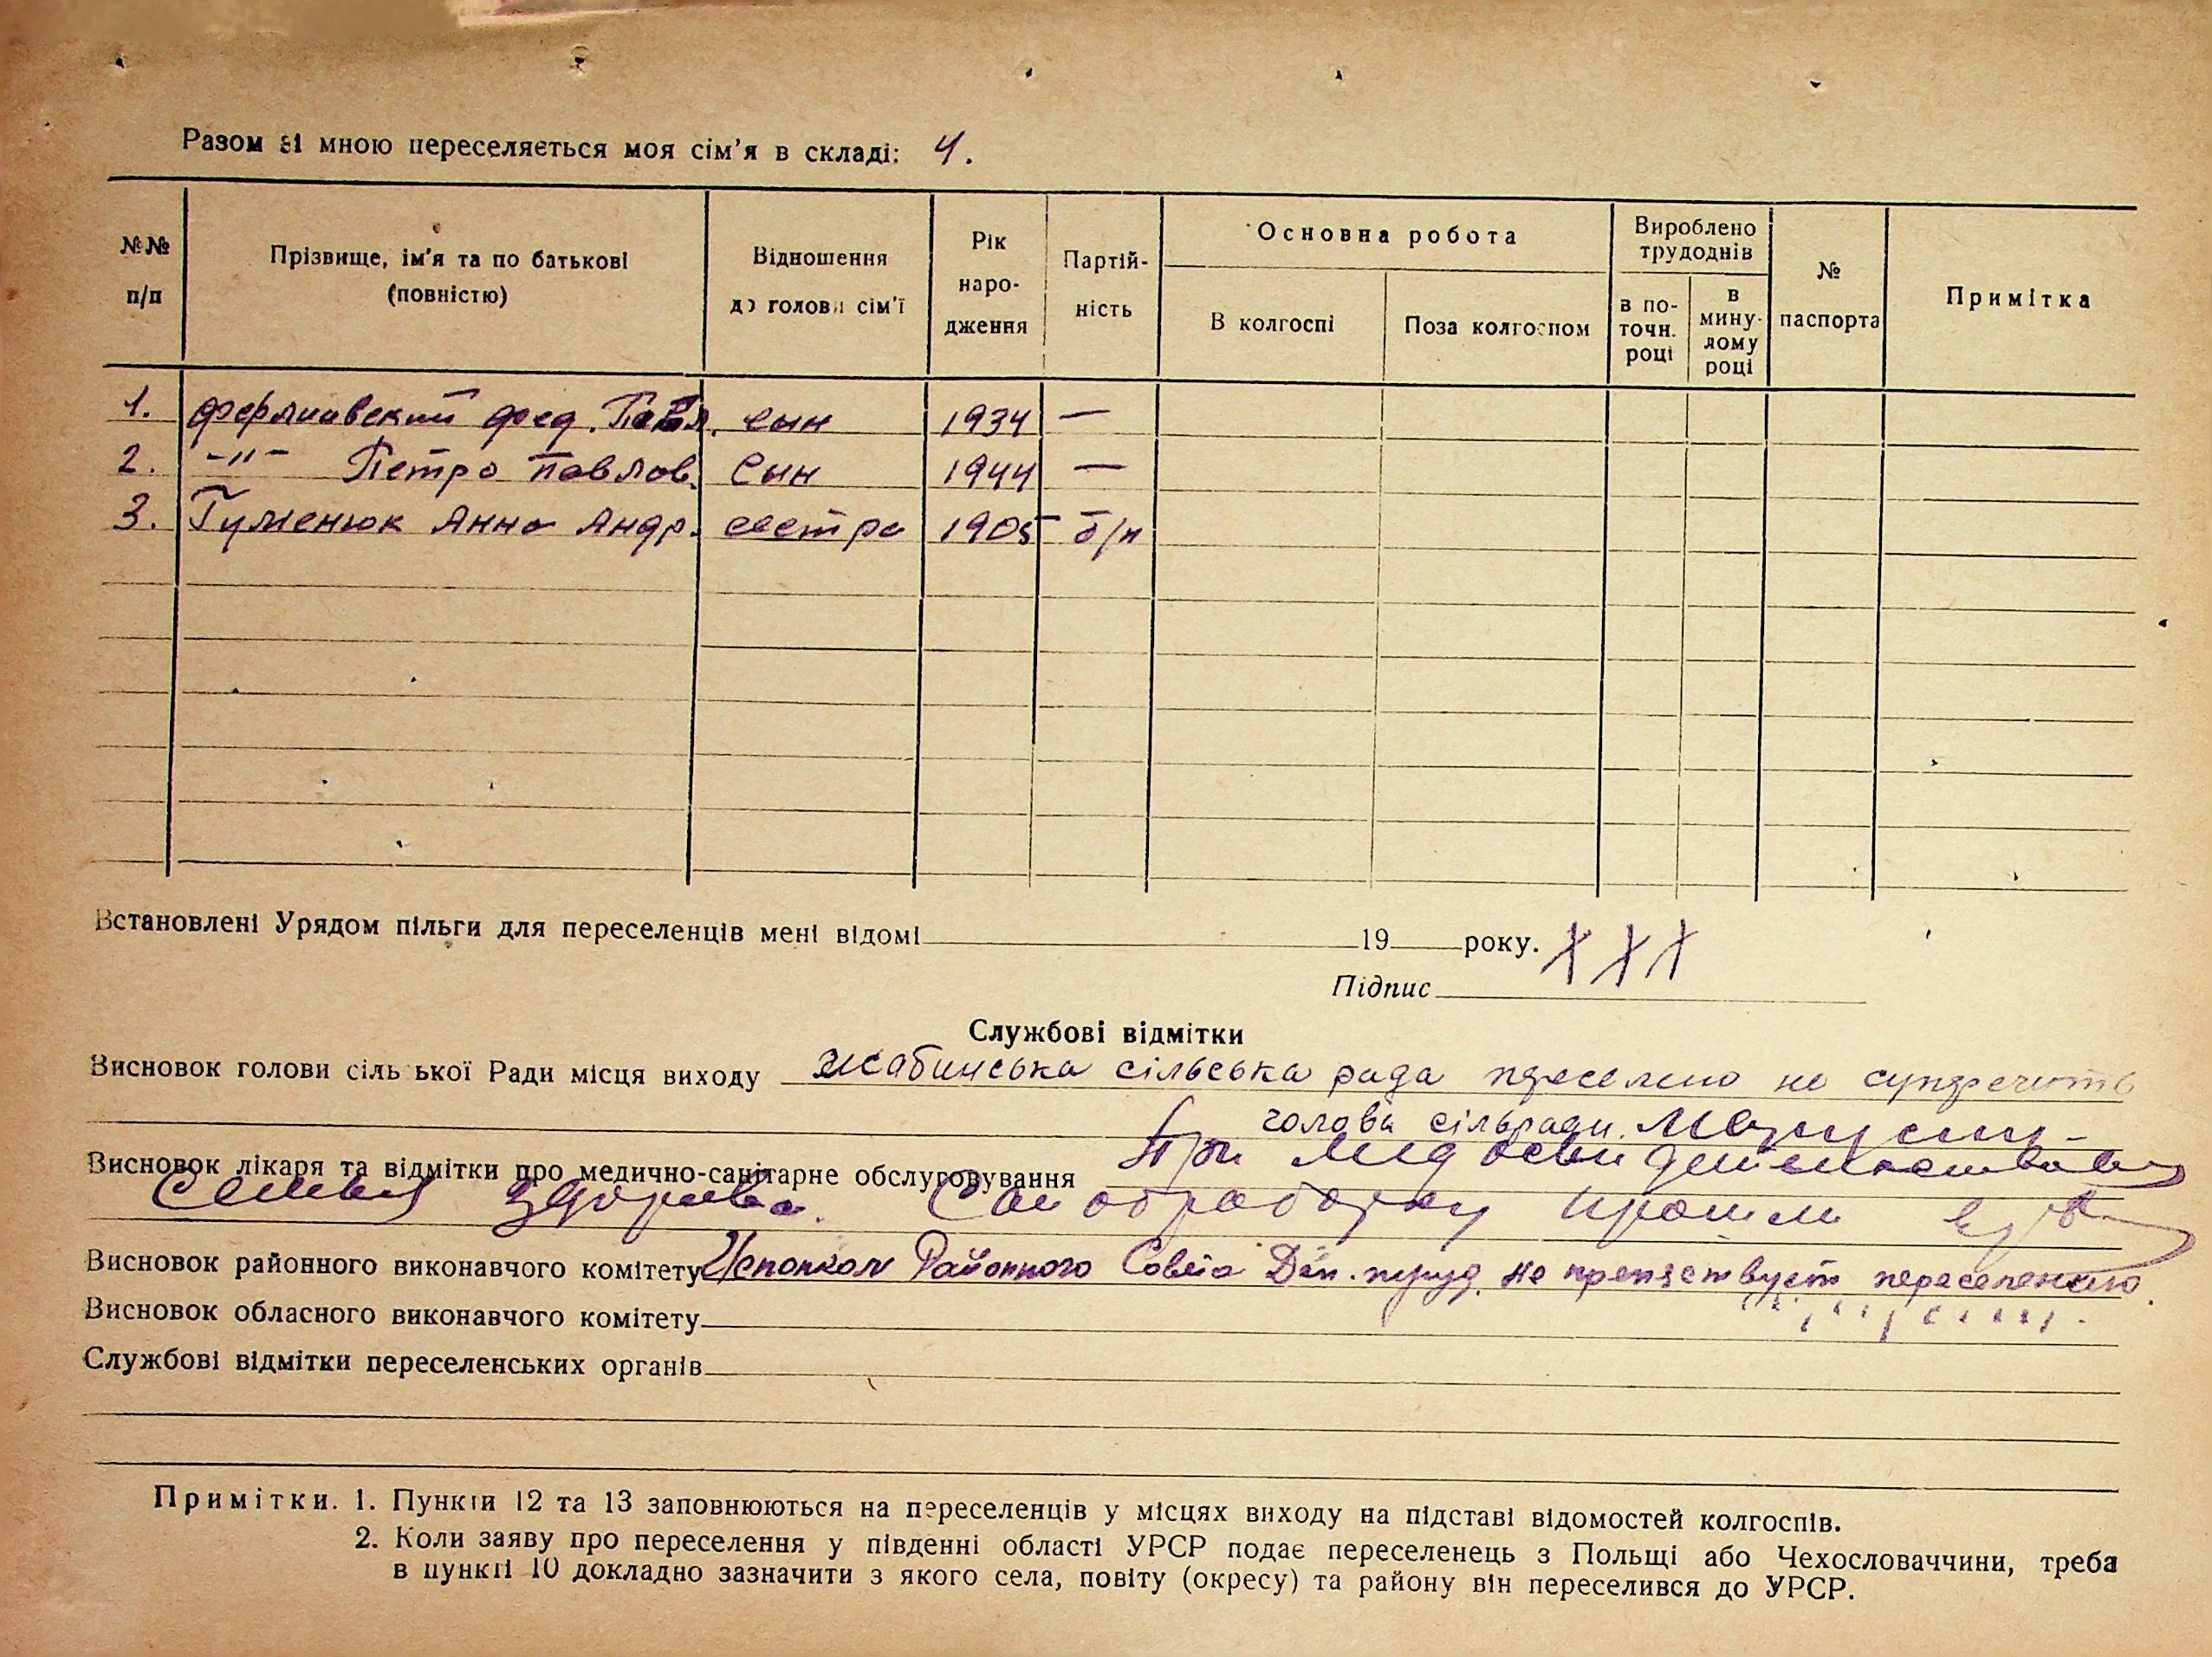 Разом зі мною переселяється моя сім'я в складі: 4.
№№ п/п
Прізвище, ім'я та по батькові (повністю)
Відношення до голови сім'ї
Рік народження
Партійність
Основна робота
В колгоспі
Поза колгоспом
Вироблено трудоднів
в поточн. році
в минулому році
№ паспорта
Примітка
1. Фед. Павл. сын 1934 —
2. -"- Петро Павлов. Сын 1944 —
3. Гуменюк Анна Андр. сестра 1905 б/п
Встановлені Урядом пільги для переселенців мені відомі 19 року. ХХХ
Підпис
Службові відмітки
Висновок голови сільської Ради місця виходу Жабинська сільська рада не
голова сільради.
Висновок лікаря та відмітки про медично-санітарне обслуговування При мед
Семья здорова. Сан обработку прошли
Висновок районного виконавчого комітету Исполком Районного Совета Деп. труд. не препятствует переселению.
Висновок обласного виконавчого комітету
Службові відмітки переселенських органів
Примітки. 1. Пункти 12 та 13 заповнюються на переселенців у місцях виходу на підставі відомостей колгоспів.
2. Коли заяву про переселення у південні області УРСР подає переселенець з Польщі або Чехословаччини, треба
в пункті 10 докладно зазначити з якого села, повіту (окресу) та району він переселився до УРСР.